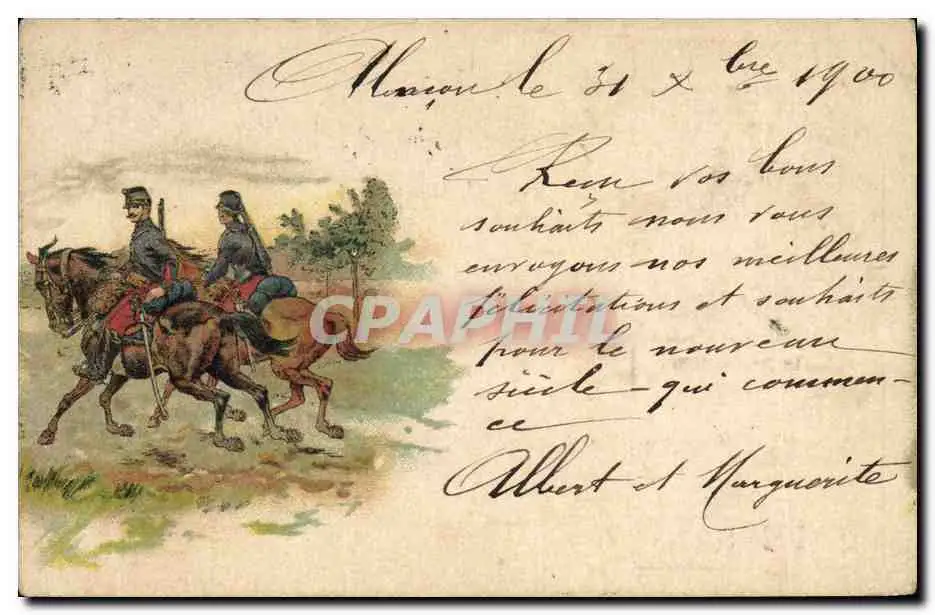 Alençon le 31 Xbre 1900
Reçu vos bons
souhaits nous vous
envoyons nos meilleures
félicitations et souhaits
pour le nouveau
siècle qui commen-
ce
Albert et Marguerite
CPAPHIL